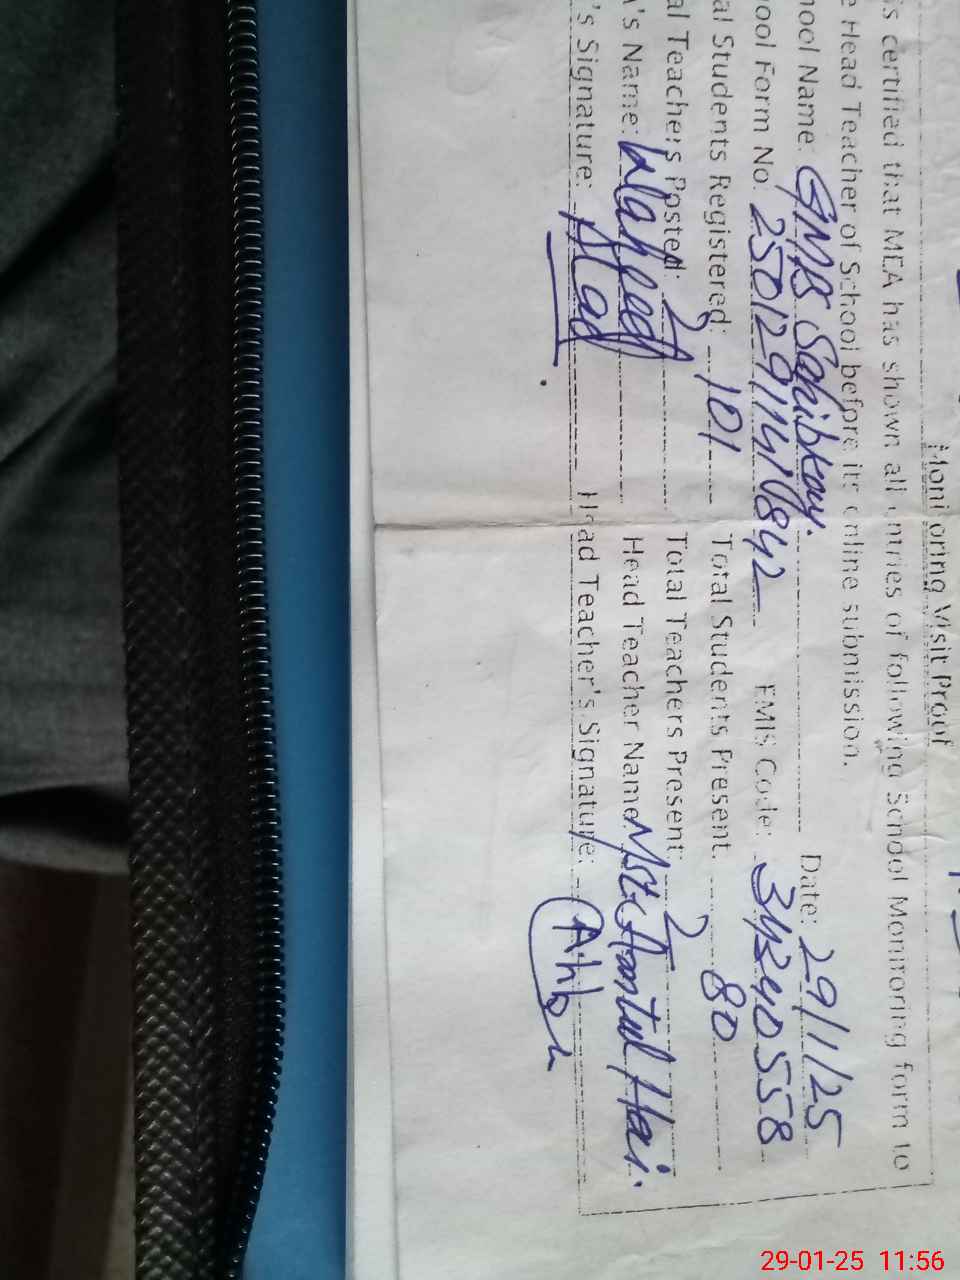 Monitoring Visit Proof
is certified that MEA has shown all entries of following School Monitoring form to
e Head Teacher of School before its online submission.
hool Name: GMPS Sahibkay. Date: 29/1/25
ool Form No. 25012911410842 EMIS Code: 34240558
al Students Registered: 101 Total Students Present: 80
al Teachers Posted: 2 Total Teachers Present: 2
A's Name: Waheed Head Teacher Name Mst. Amtul Hai.
's Signature: Head Teacher's Signature:
29-01-25 11:56